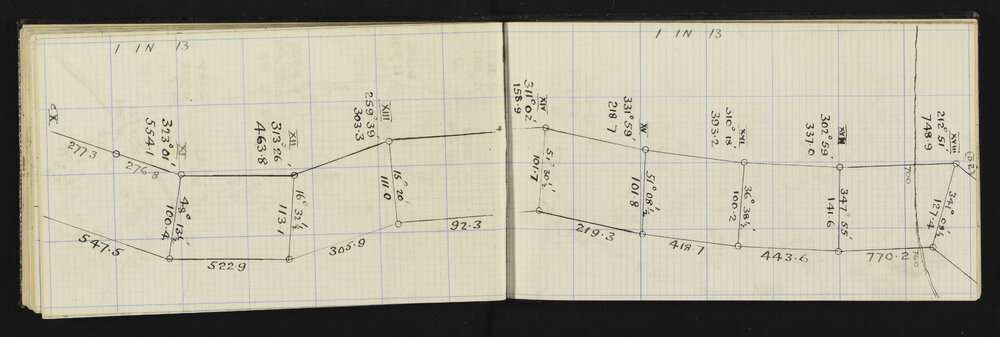 1 IN 13
X
277.3
276.8
XI
323° 01′
554.1
48° 13½′
100.4
547.5
522.9
XII
313° 26′
463.8
16° 32½′
113.1
305.9
XIII
259° 39′
303.3
15° 20′
111.0
92.3
1 IN 13
XIV
311° 02′
158.9
51° 30½′
101.7
219.3
XV
331° 59′
218.7
51° 08½′
101.8
418.7
XVI
310° 18′
393.2
36° 38½′
100.2
443.6
302° 59′
337.0
347° 55′
141.6
770.2
700
760
XVIII
212° 51′
748.9
341° 08½′
127.4